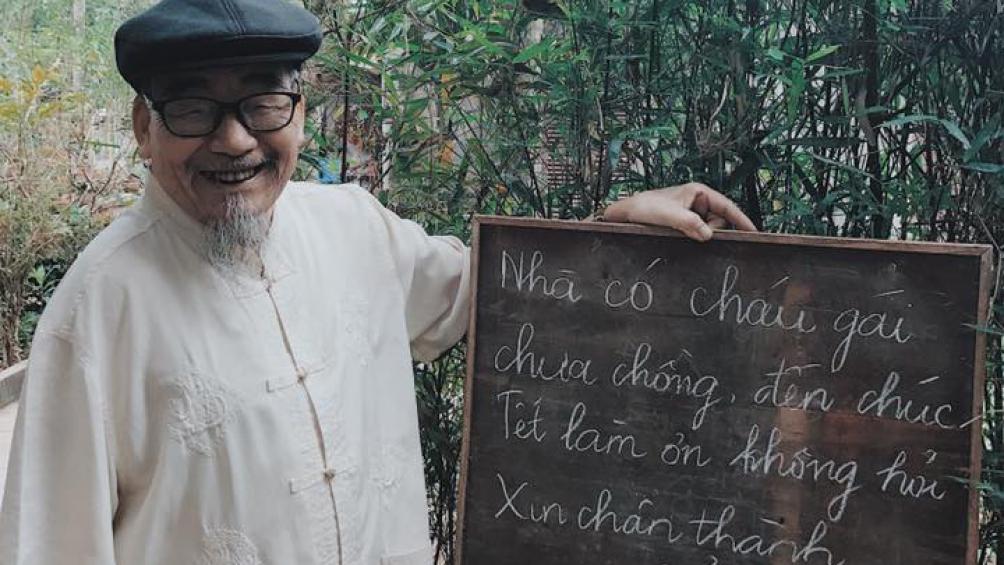 Nhà có cháu gái
chưa chồng, đến chúc
Tết làm ơn không hỏi
Xin chân thành